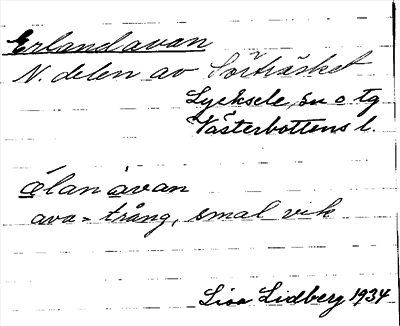 Erlandavan
N. delen av Sörträsket
Lycksele, sn o tg
Västerbottens l.
élan àvan
ava = trång, smal vik
Lisa Lidberg 1934